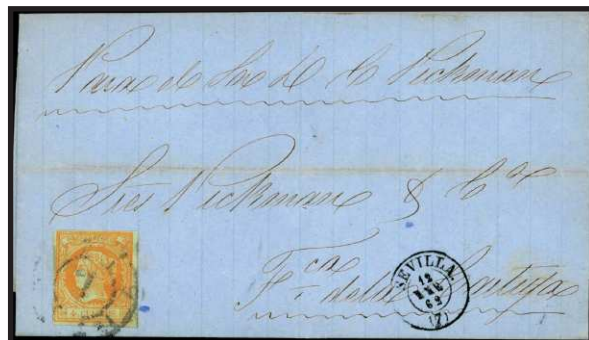 Para el Sor D. C. Pickman
Sres Pickman & Ca
Fca de la Cartuja
SEVILLA.
12
ENE
62
(7)